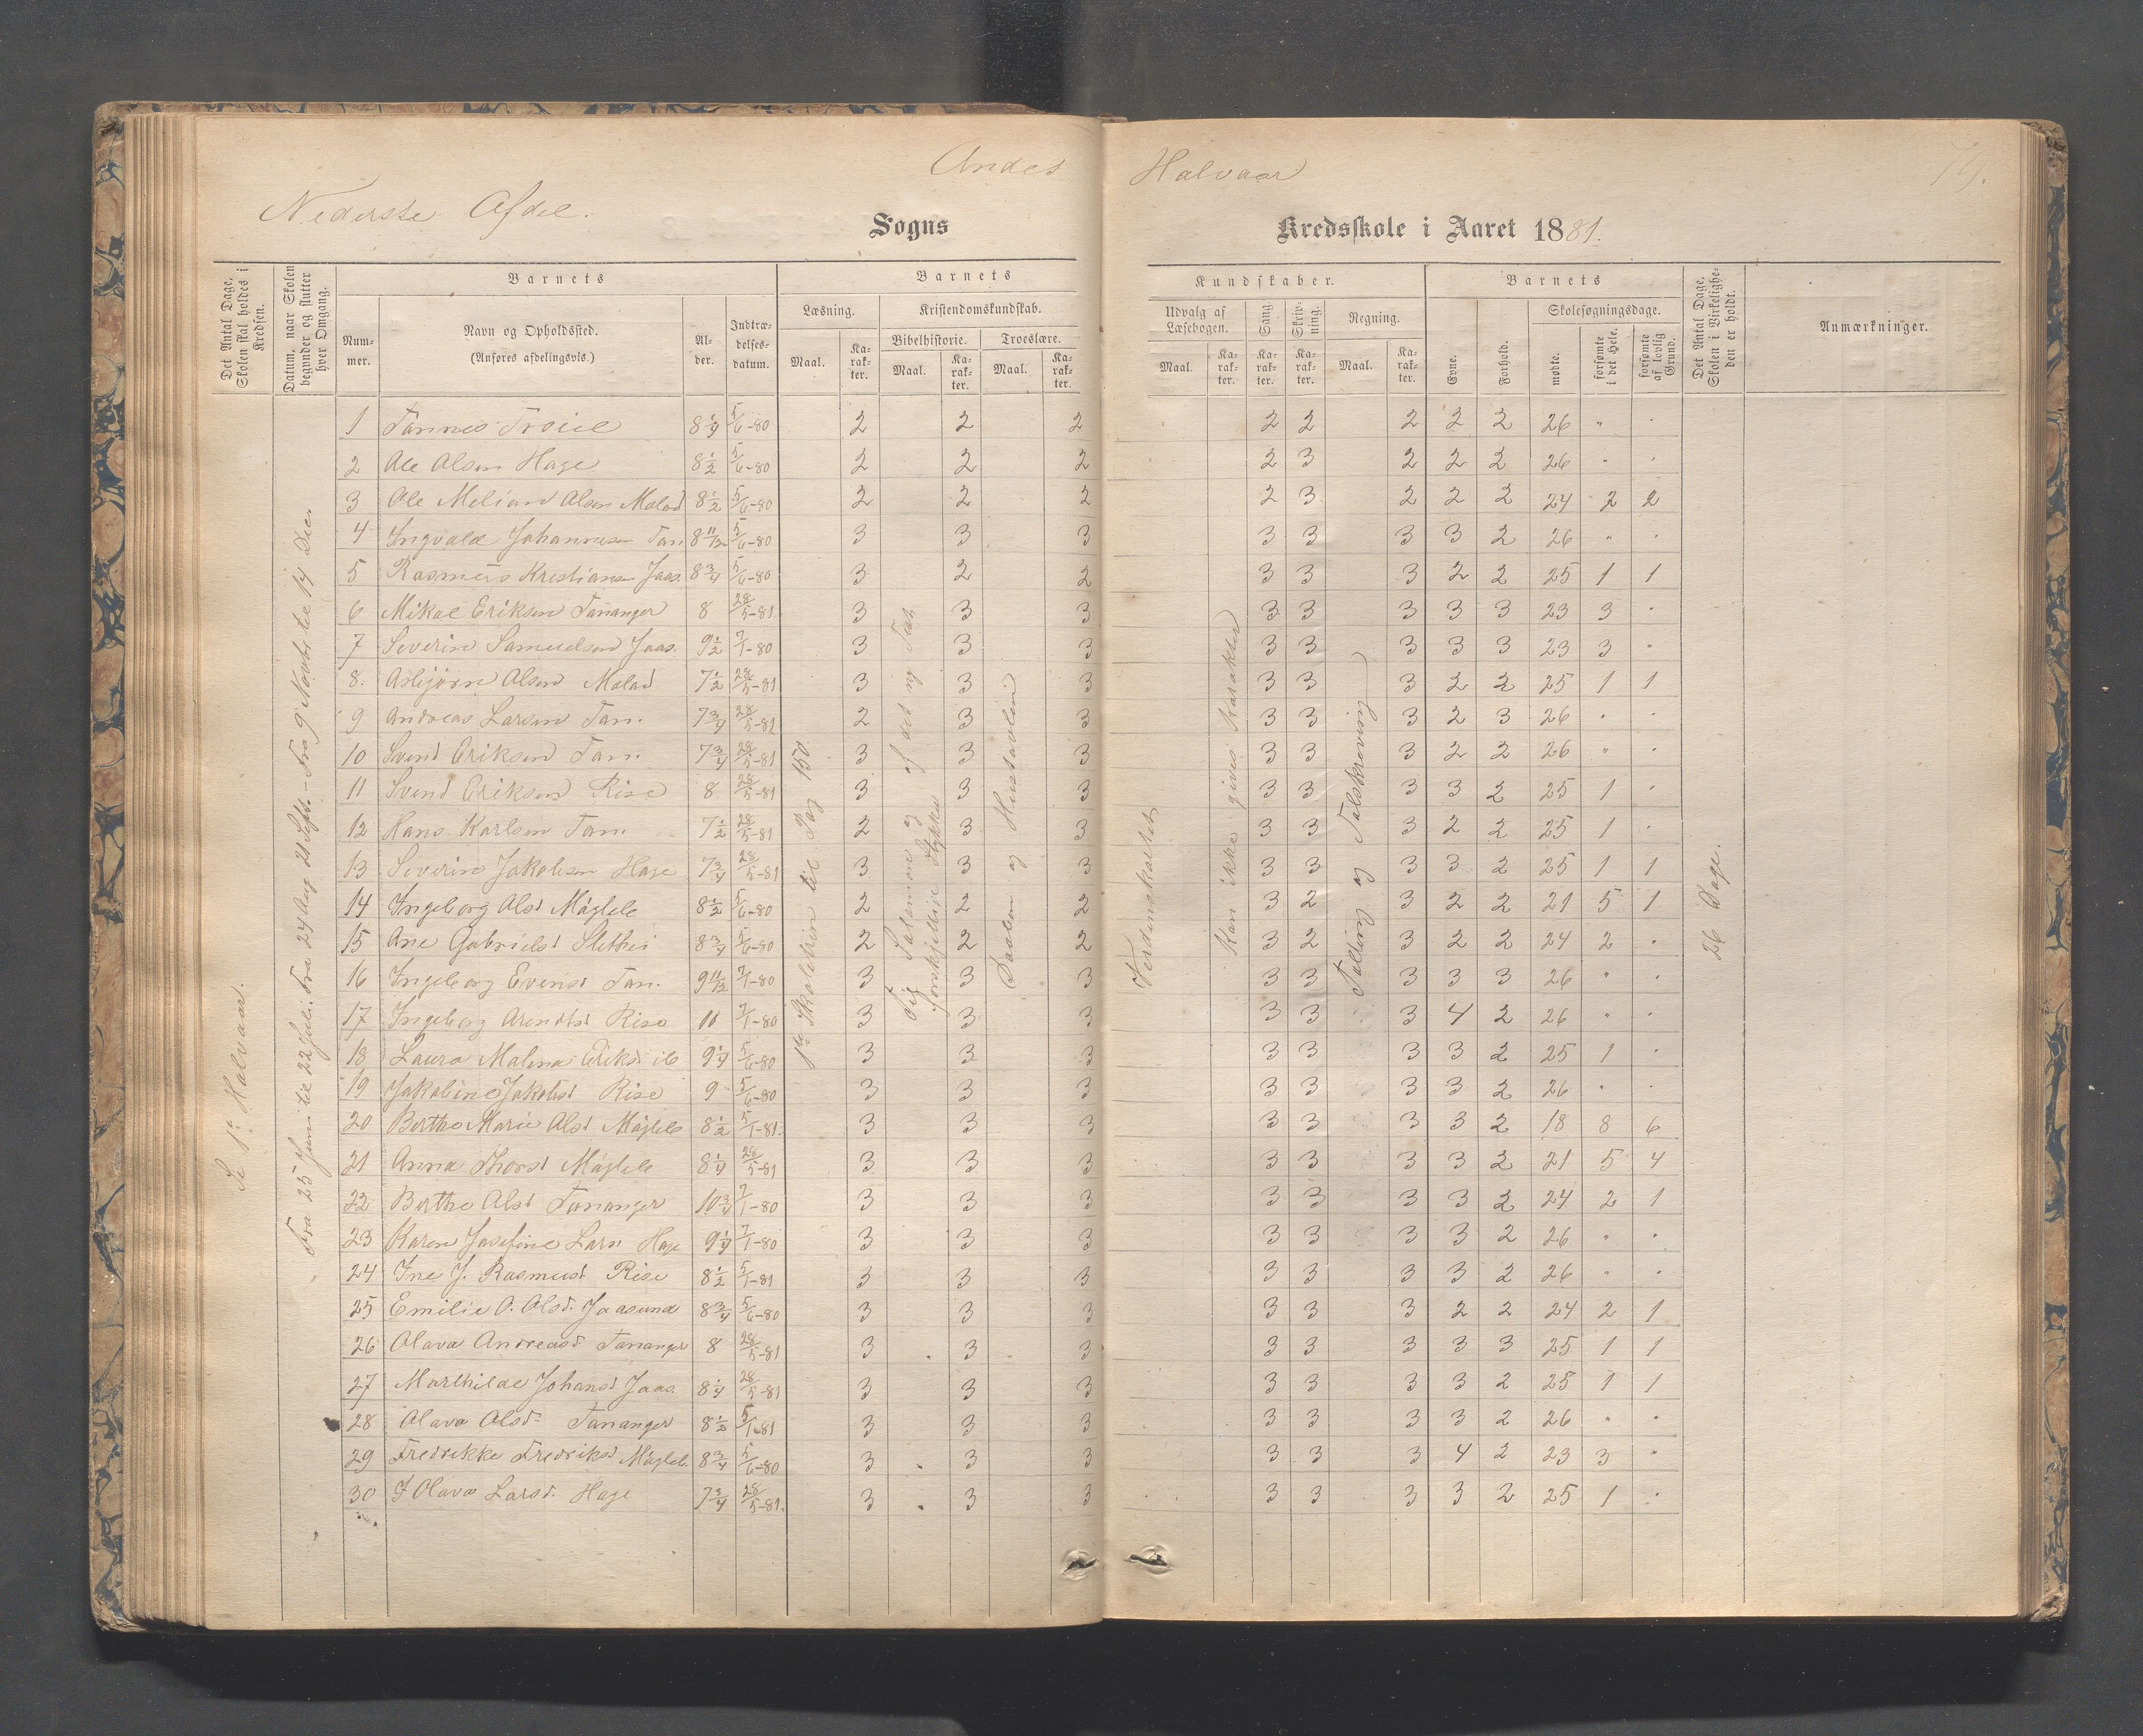 Andet Halvaar 79.
Nederste Afdel.
Sogns Kredsskole i Aaret 1881.
Det Antal Dage, Skolen skal holdes i Kredsen.
Datum, naar Skolen begynder og slutter hver Omgang.
Barnets
Nummer.
Navn og Opholdssted.
(Anføres afdelingsvis.)
Alder.
Indtrædelsesdatum.
Barnets Kundskaber.
Læsning.
Maal. Karakter.
Kristendomskundskab.
Bibelhistorie.
Maal. Karakter.
Troeslære.
Maal. Karakter.
Udvalg af Læsebogen.
Maal. Karakter.
Sang.
Karakter.
Skrivning.
Karakter.
Regning.
Maal. Karakter.
Barnets
Evne.
Forhold.
Skolesøgningsdage.
mødte.
forsømte i det Hele.
forsømte af lovlig Grund.
Det Antal Dage, Skolen i Virkeligheden er holdt.
Anmærkninger.
Se 1ste Halvaar.
Fra 25 Juni til 22 Juli. Fra 24 Aug 21 Sept - Fra 9 Novbr til 14 Dec.
1ste Skoletrin til Pag 150
Forskjellige Stykker af det ny Test
Daaben og Hustavlen
Verdenskartet
Kan ikke gives Karakter
Tælling og Talskrivning
26 Dage.
1 Tønnes Troiel 8 1/4 5/6-80 2 2 2 2 2 2 2 2 26 " "
2 Ole Olsen Hage 8 1/2 5/6-80 2 2 2 2 3 2 2 2 26 " "
3 Ole Melian Olsen Meland 8 1/2 5/6-80 2 2 2 2 3 2 2 2 24 2 2
4 Ingvald Johannesen Tan. 8 11/12 5/6-80 3 3 3 3 3 3 3 2 26 " "
5 Rasmus Kristiansen Jaas. 8 3/4 5/6-80 3 2 2 3 3 3 2 2 25 1 1
6 Mikal Eriksen Tananger 8 28/5-81 3 3 3 3 3 3 3 3 23 3 "
7 Severin Samuelsen Jaas. 9 1/2 7/1-80 3 3 3 3 3 3 3 3 23 3 "
8. Asbjørn Olsen Meland 7 1/2 28/5-81 3 3 3 3 3 3 2 2 25 1 1
9 Andreas Larsen Tan. 7 3/4 28/5-81 2 3 3 3 3 3 2 3 26 " "
10 Svend Eriksen Tan. 7 3/4 28/5-81 3 3 3 3 3 3 2 2 26 " "
11 Svend Eriksen Risa 8 28/5-81 3 3 3 3 3 3 3 2 25 1 "
12 Hans Karlsen Tan. 7 1/2 28/5-81 2 3 3 3 3 3 2 2 25 1 "
13 Severin Jakobsen Hage 7 3/4 28/5-81 3 3 3 3 3 3 3 2 25 1 1
14 Ingeborg Olsd Mågleb 8 1/2 5/6-80 2 2 2 3 2 3 2 2 21 5 1
15 Ane Gabrielsd Slethei 8 3/4 5/6-80 2 2 2 3 2 3 2 2 24 2 "
16 Ingeborg Evensd Tan. 9 11/12 7/1-80 3 3 3 3 3 3 3 3 26 " "
17 Ingeborg Arendtsd Risa 11 7/1-80 3 3 3 3 3 3 4 2 26 " "
18 Laura Malena Eriksd ib 9 1/4 5/6-80 3 3 3 3 3 3 3 2 25 1 "
19 Jakobine Jakobsd Risa 9 5/6-80 3 3 3 3 3 3 3 2 26 " "
20 Berthe Marie Olsd Mågleb 8 1/2 5/1-81. 3 3 3 3 3 3 3 2 18 8 6
21 Anna Thorsd Mågleb 8 1/4 28/5-81 3 3 3 3 3 3 3 2 21 5 4
22 Berthe Olsd Tananger 10 3/4 7/1-80 3 3 3 3 3 3 3 2 24 2 1
23 Karen Josefine Larsd Hage 9 1/4 7/1-80 3 3 3 3 3 3 3 2 26 " "
24 Ine J. Rasmusd Risa 8 1/2 5/1-81 3 3 3 3 3 3 3 2 26 " "
25 Emilie O. Olsd. Jaasund 8 3/4 5/6-80 3 3 3 3 3 3 2 2 24 2 1
26 Olava Andreasd Tananger 8 28/5-81 3 3 3 3 3 3 3 3 25 1 1
27 Marthilde Johansd Jaas. 8 1/4 28/5-81 3 3 3 3 3 3 3 2 25 1 1
28 Olava Olsd Tananger 8 1/2 5/1-81 3 3 3 3 3 3 3 2 26 " "
29 Fredrikke Fredriksd Mågleb. 8 3/4 5/6-80 3 3 3 3 3 3 4 2 23 3 "
30 J Olava Larsd. Hage 7 3/4 28/5-81. 3 3 3 3 3 3 3 2 25 1 "